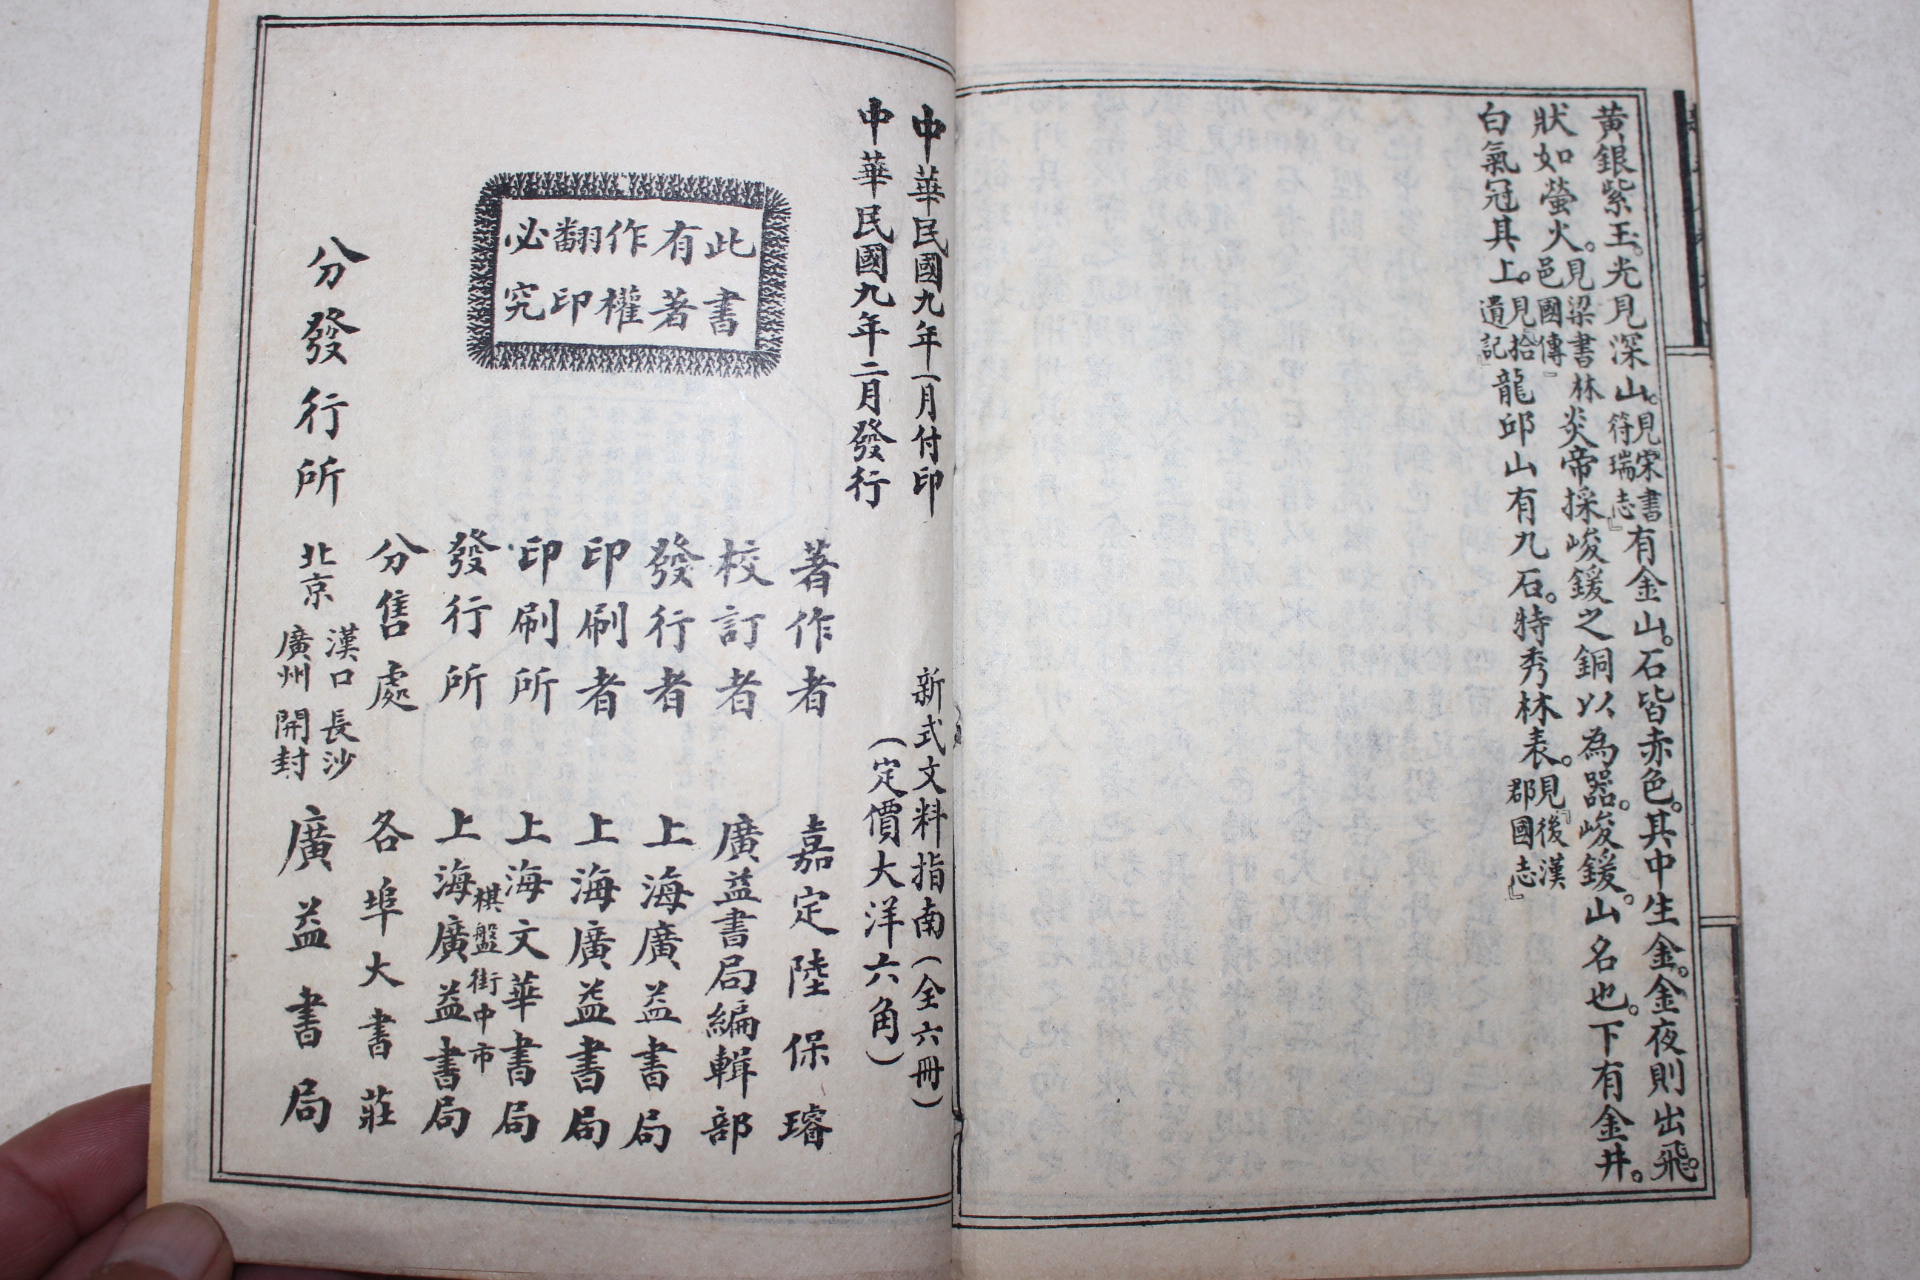 黃銀紫玉。光見深山。見『宋書符瑞志』有金山。石皆赤色。其中生金。金夜則出飛。
狀如螢火。見『梁書林邑國傳』炎帝採峻鍰之銅以為器。峻鍰。山名也。下有金井。
白氣冠其上。見『拾遺記』龍邱山有九石。特秀林表。見『後漢郡國志』
中華民國九年一月付印
中華民國九年二月發行
新式文料指南(全六冊)
(定價大洋六角)
此書
有著
作權
翻印
必究
著作者 嘉定陸保璿
校訂者 廣益書局編輯部
發行者 上海廣益書局
印刷者 上海廣益書局
印刷所 上海文華書局
發行所 上海棋盤街中市廣益書局
分售處 各埠大書莊
分發行所 北京 漢口 廣州 長沙 開封 廣益書局